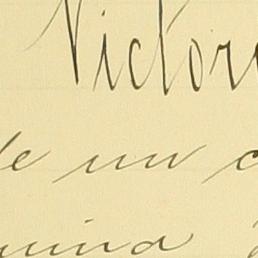 Victor
de un c
uina